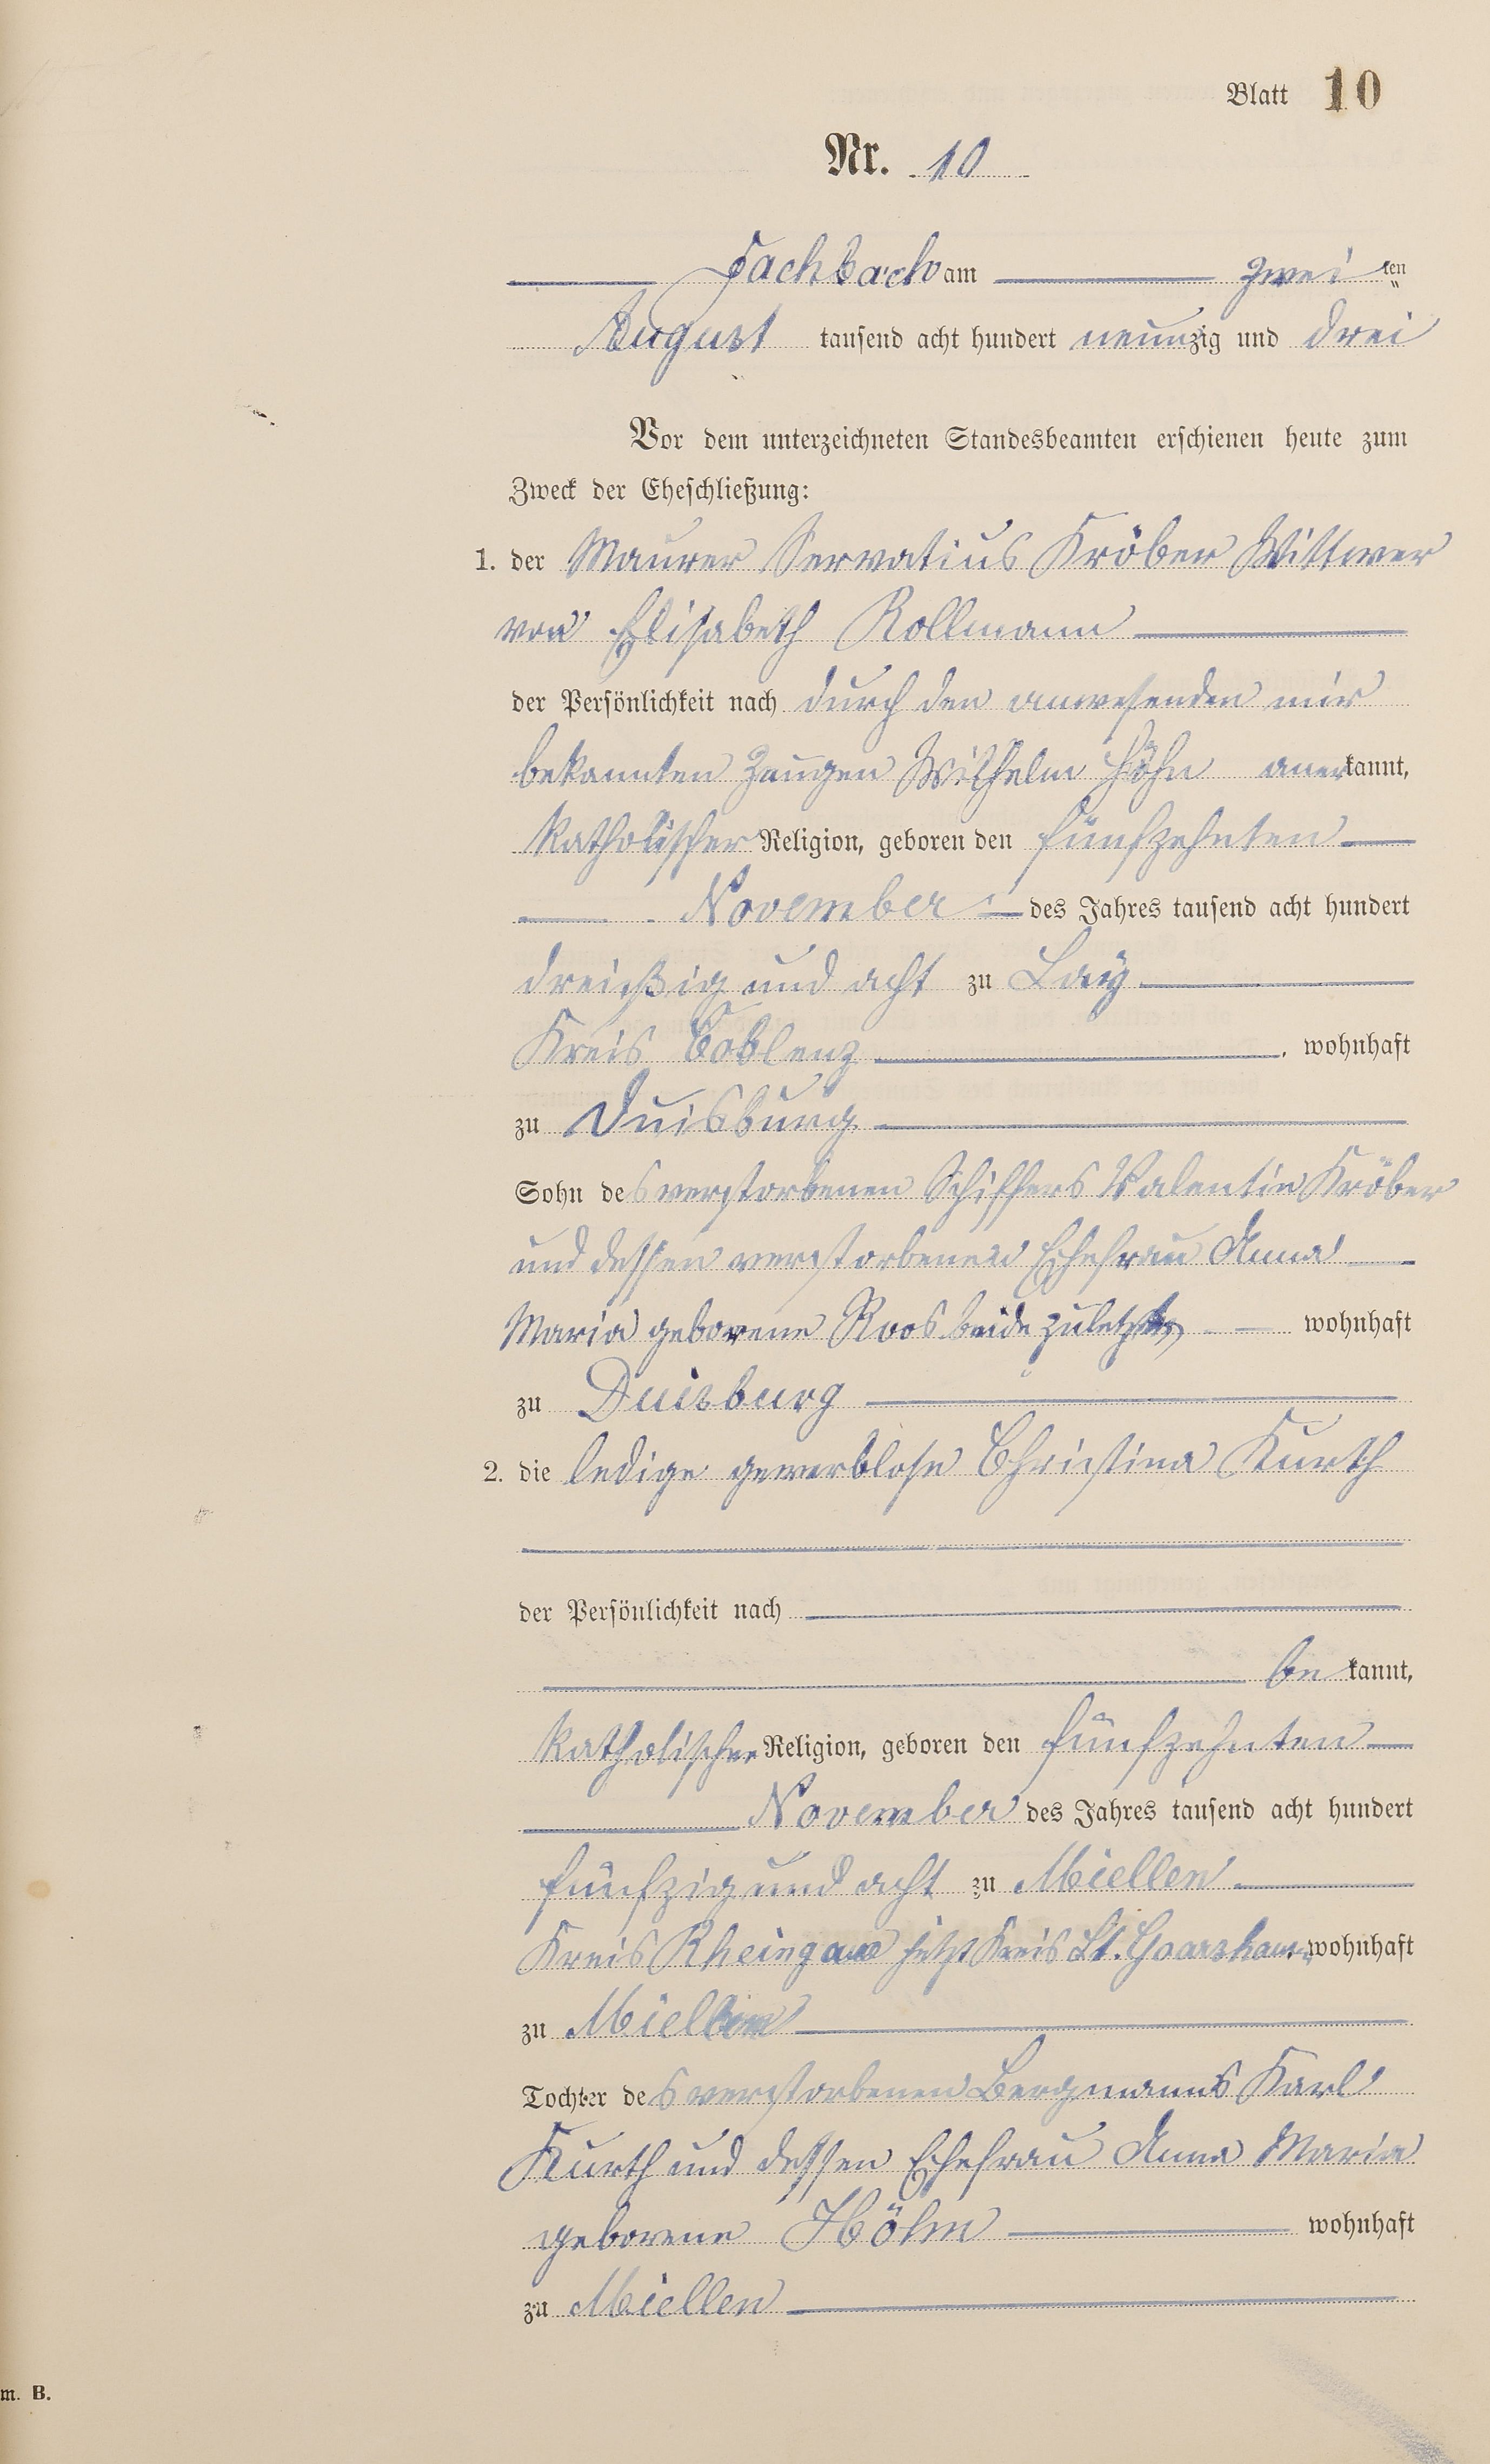 Blatt 10
Nr. 10
Fachbach am zwei ten
August tausend acht hundert neunzig und drei
Vor dem unterzeichneten Standesbeamten erschienen heute zum
Zweck der Eheschließung:
1. der Maurer Servatius Kröber Wittwer
von Elisabeth Rollmann
der Persönlichkeit nach durch den anwesenden mir
bekannten Zeugen Wilhelm Höhn anerkannt,
katholischer Religion, geboren den fünfzehnten
November des Jahres tausend acht hundert
dreißig und acht zu Lay
Kreis Coblenz, wohnhaft
zu Duisburg
Sohn des verstorbenen Schiffers Valentin Kröber
und dessen verstorbenen Ehefrau Anna
Maria geborene Roos beide zuletzt wohnhaft
zu Duisburg
2. die ledige gewerblose Christina Kurth
der Persönlichkeit nach
be kannt,
katholischer Religion, geboren den fünfzehnten
November des Jahres tausend acht hundert
fünfzig und acht zu Miellen
Kreis Rheingau jetzt Kreis St. Goarshausen, wohnhaft
zu Miellen
Tochter des verstorbenen Bergmanns Karl
Kurth und dessen Ehefrau Anna Maria
geborene Höhn wohnhaft
zu Miellen
m. B.